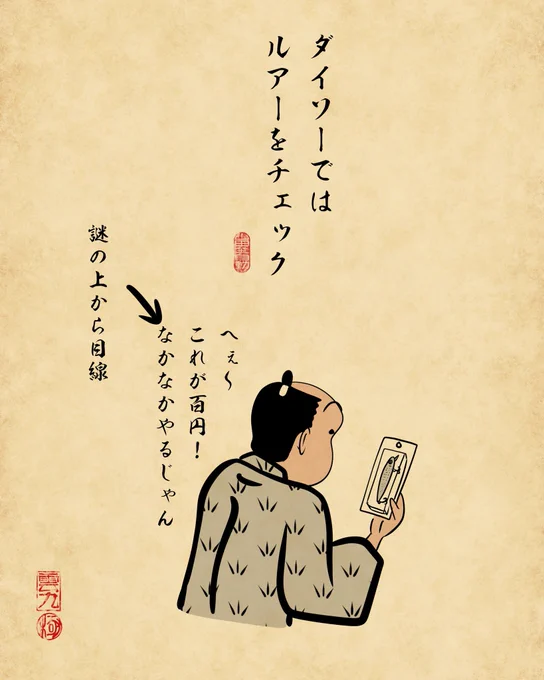 ダイソーでは
ルアーをチェック
謎の上から目線
へぇ〜
これが百円！
なかなかやるじゃん